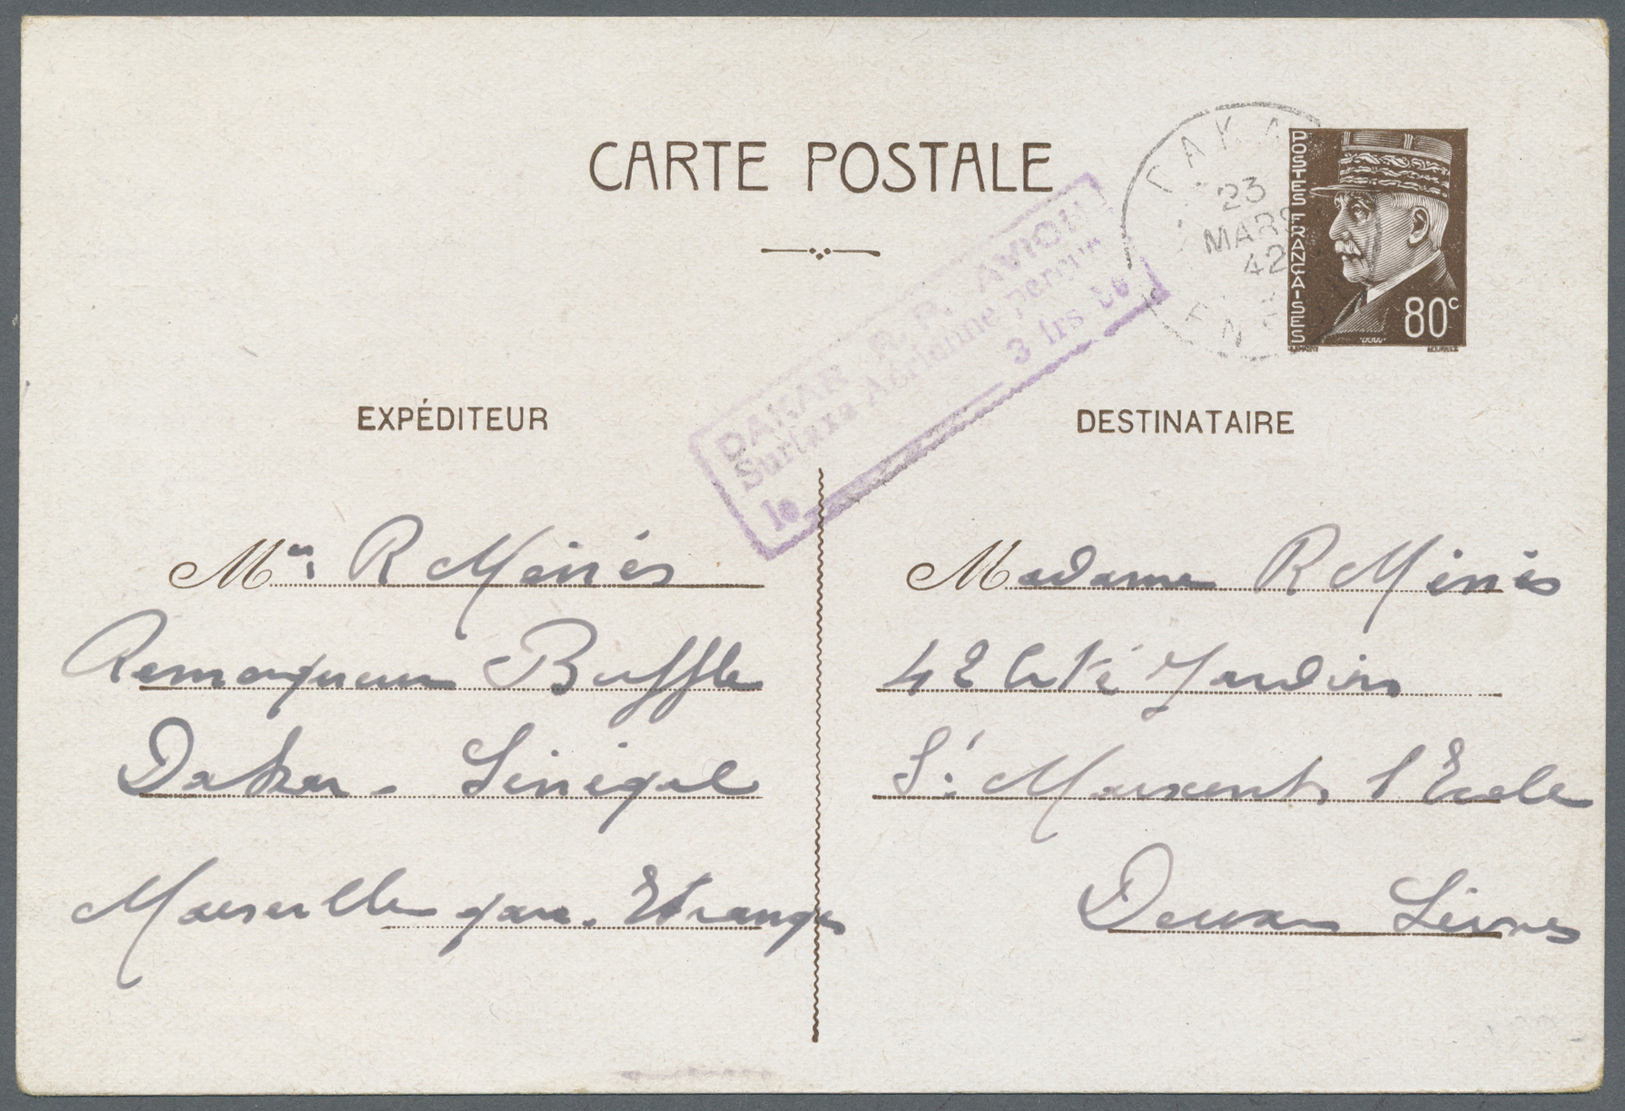 CARTE POSTALE
DAKAR
23
MARS
42
POSTES FRANÇAISES
80c
DAKAR R. P. AVION
Surtaxe Aérienne perçue
3 frs
le
EXPÉDITEUR
Mr R Méniès
Remorqueur Buffle
Dakar. Sénégal
Marseille gare. Etranger
DESTINATAIRE
Madame R Méniès
42 Cité Jardin
St Maixent l'Ecole
Deux Sèvres